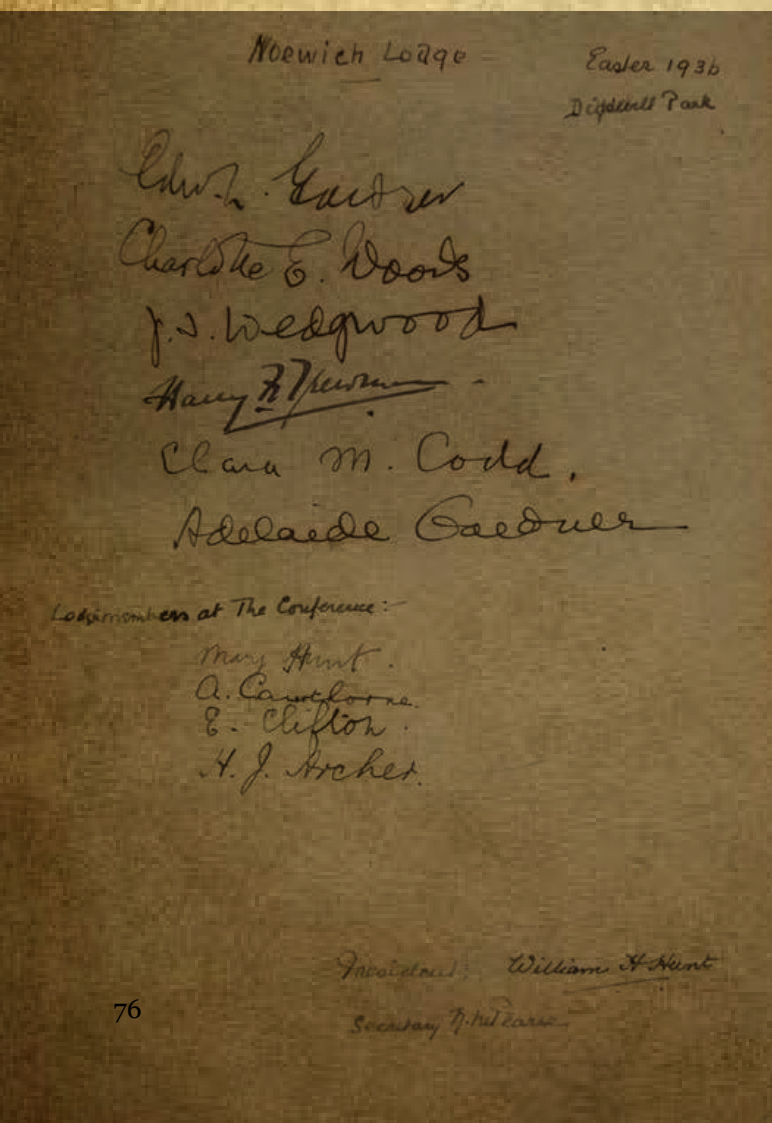 Norwich Lodge
Easter 1936
Digswell Park
Edw. L. Gardner
Charlotte E. Woods
J. I. Wedgwood
Harry
Clara M. Codd.
Adelaide Gardner
Lodge members at The Conference:-
Mary Hunt.
A. Cawthorne.
E. Clifton.
H. J. Archer.
President: William H Hunt
Secretary
76